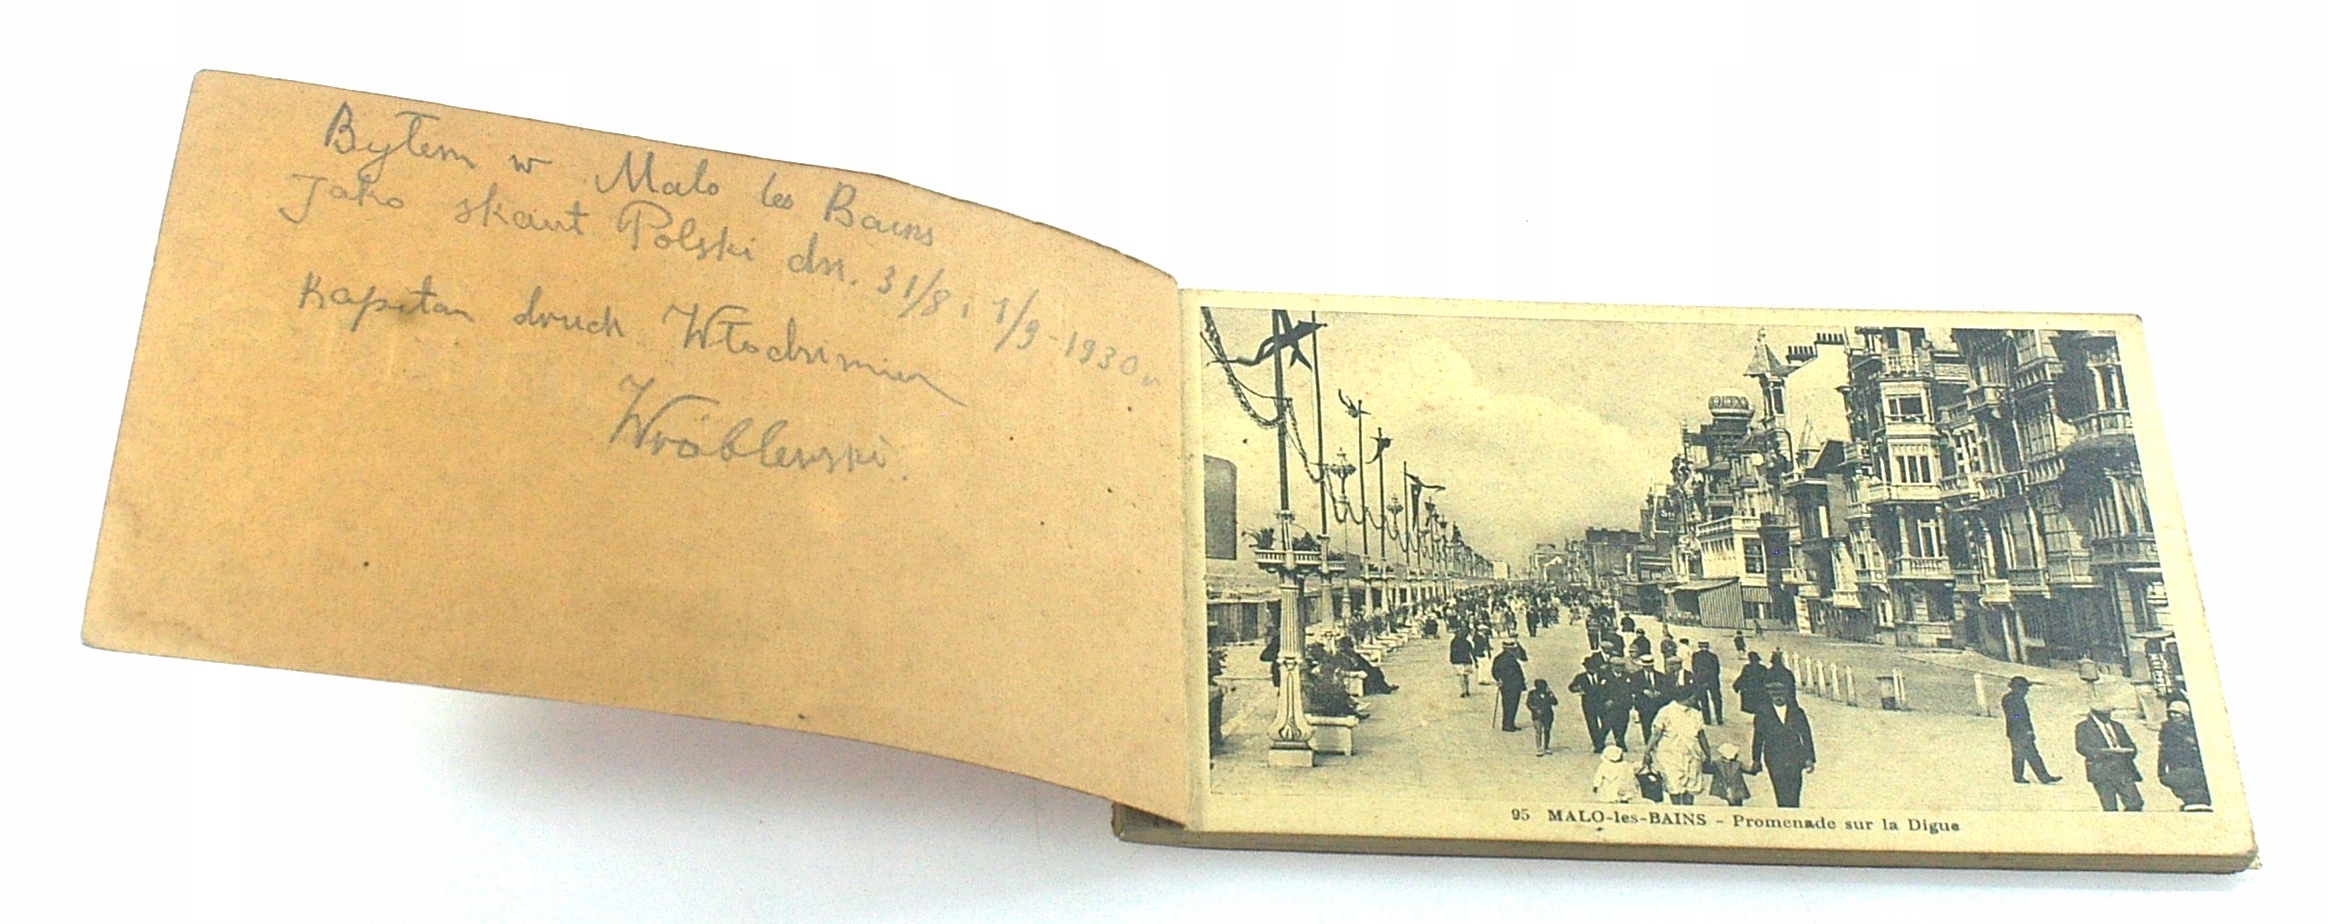 Byłem w Malo les Bains
Jako skaut Polski dn. 31/8 i 1/9-1930 r
Kapitan druch Włodzimierz
Wróblewski.
95 MALO-les-BAINS - Promenade sur la Digue